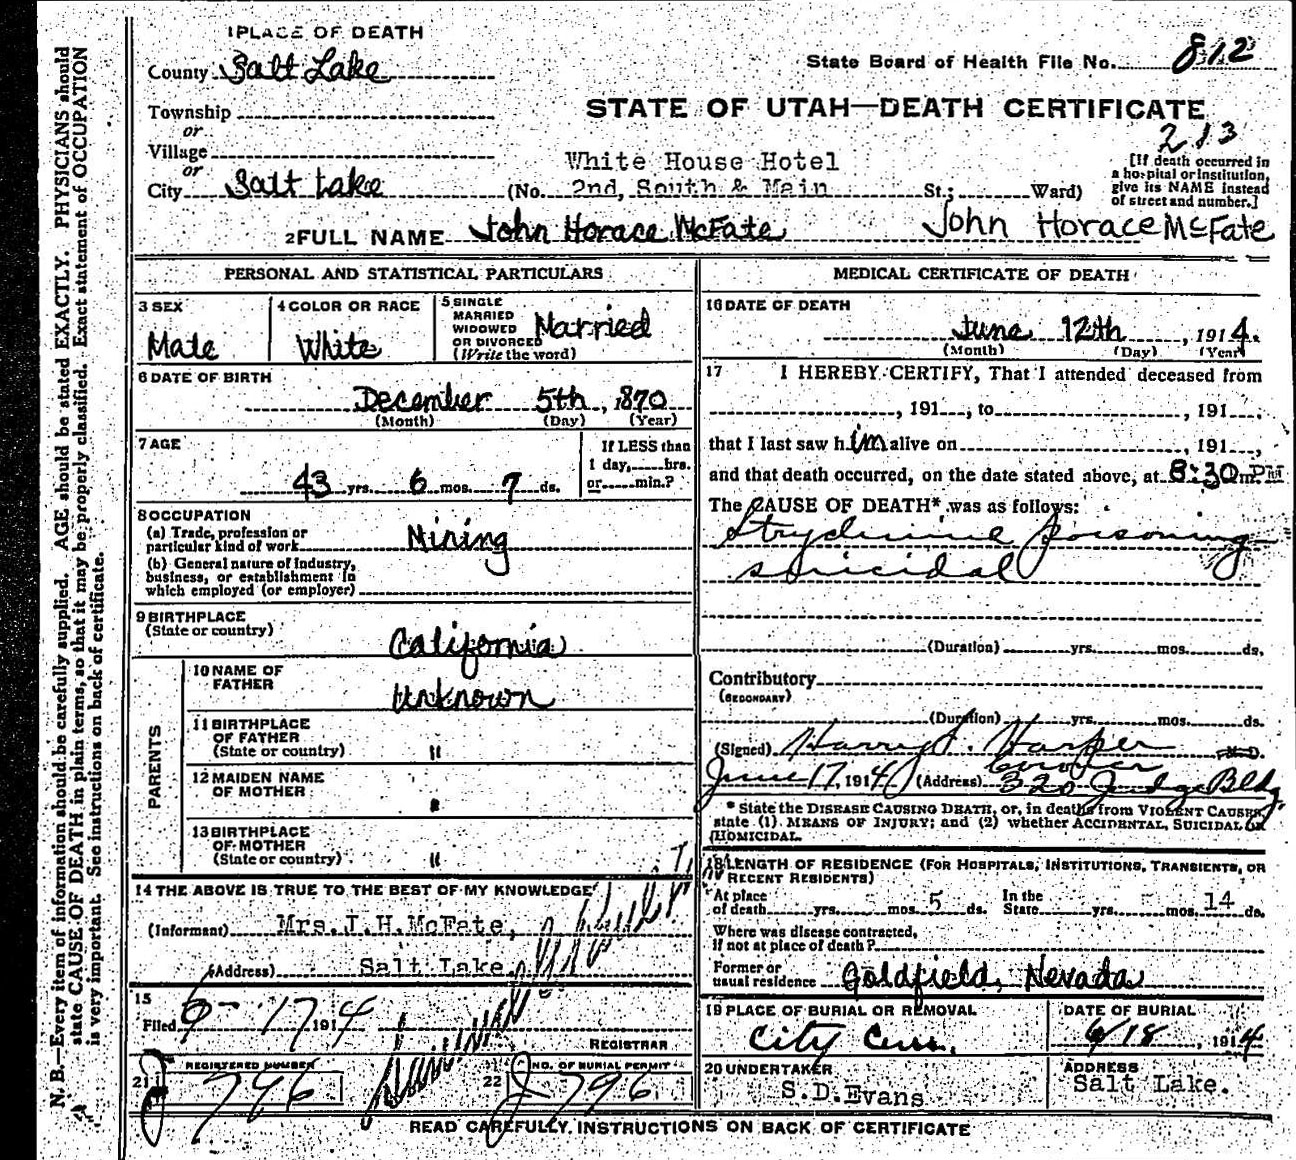 1PLACE OF DEATH
County Salt Lake
State Board of Health File No. 812
Township
or
STATE OF UTAH—DEATH CERTIFICATE
213
Village
or
White House Hotel
[If death occurred in
a hospital or institution,
give its NAME instead
of street and number.]
City Salt Lake (No. 2nd, South & Main St.; Ward)
2FULL NAME John Horace McFate John Horace McFate
PERSONAL AND STATISTICAL PARTICULARS
3 SEX
Male
4 COLOR OR RACE
White
5 SINGLE
MARRIED
WIDOWED
OR DIVORCED
(Write the word)
Married
6 DATE OF BIRTH
December 5th, 1870
(Month) (Day) (Year)
7 AGE
43 yrs. 6 mos. 7 ds.
If LESS than
1 day, hrs.
or min.?
8 OCCUPATION
(a) Trade, profession or
particular kind of work Mining
(b) General nature of industry,
business, or establishment in
which employed (or employer)
9 BIRTHPLACE
(State or country)
California
PARENTS
10 NAME OF
FATHER
Unknown
11 BIRTHPLACE
OF FATHER
(State or country) "
12 MAIDEN NAME
OF MOTHER "
13 BIRTHPLACE
OF MOTHER
(State or country) "
14 THE ABOVE IS TRUE TO THE BEST OF MY KNOWLEDGE
(Informant) Mrs.J.H.McFate,
(Address) Salt Lake,
15
Filed 6-17 1914
REGISTRAR
21 REGISTERED NUMBER
796
22 NO. OF BURIAL PERMIT
796
MEDICAL CERTIFICATE OF DEATH
16 DATE OF DEATH
June 12th, 1914.
(Month) (Day) (Year)
17 I HEREBY CERTIFY, That I attended deceased from
, 191 , to , 191 ,
that I last saw him alive on , 191 ,
and that death occurred, on the date stated above, at 8:30 m. PM
The CAUSE OF DEATH* was as follows:
Strychnine poisoning
suicidal
(Duration) yrs. mos. ds.
Contributory
(SECONDARY)
(Duration) yrs. mos. ds.
(Signed) Harry S. Harper M.D.
Coroner
June 17, 1914 (Address) 320 Judge Bldg.
* State the DISEASE CAUSING DEATH, or, in deaths from VIOLENT CAUSES,
state (1) MEANS OF INJURY; and (2) whether ACCIDENTAL, SUICIDAL or
HOMICIDAL.
18 LENGTH OF RESIDENCE (FOR HOSPITALS, INSTITUTIONS, TRANSIENTS, OR
RECENT RESIDENTS)
At place
of death yrs. mos. 5 ds.
In the
State yrs. mos. 14 ds.
Where was disease contracted,
if not at place of death?
Former or
usual residence Goldfield, Nevada
19 PLACE OF BURIAL OR REMOVAL
City Cem.
DATE OF BURIAL
6/18, 1914
20 UNDERTAKER
S.D.Evans
ADDRESS
Salt Lake.
READ CAREFULLY INSTRUCTIONS ON BACK OF CERTIFICATE
N. B.—Every item of information should be carefully supplied. AGE should be stated EXACTLY. PHYSICIANS should
state CAUSE OF DEATH in plain terms, so that it may be properly classified. Exact statement of OCCUPATION
is very important. See instructions on back of certificate.